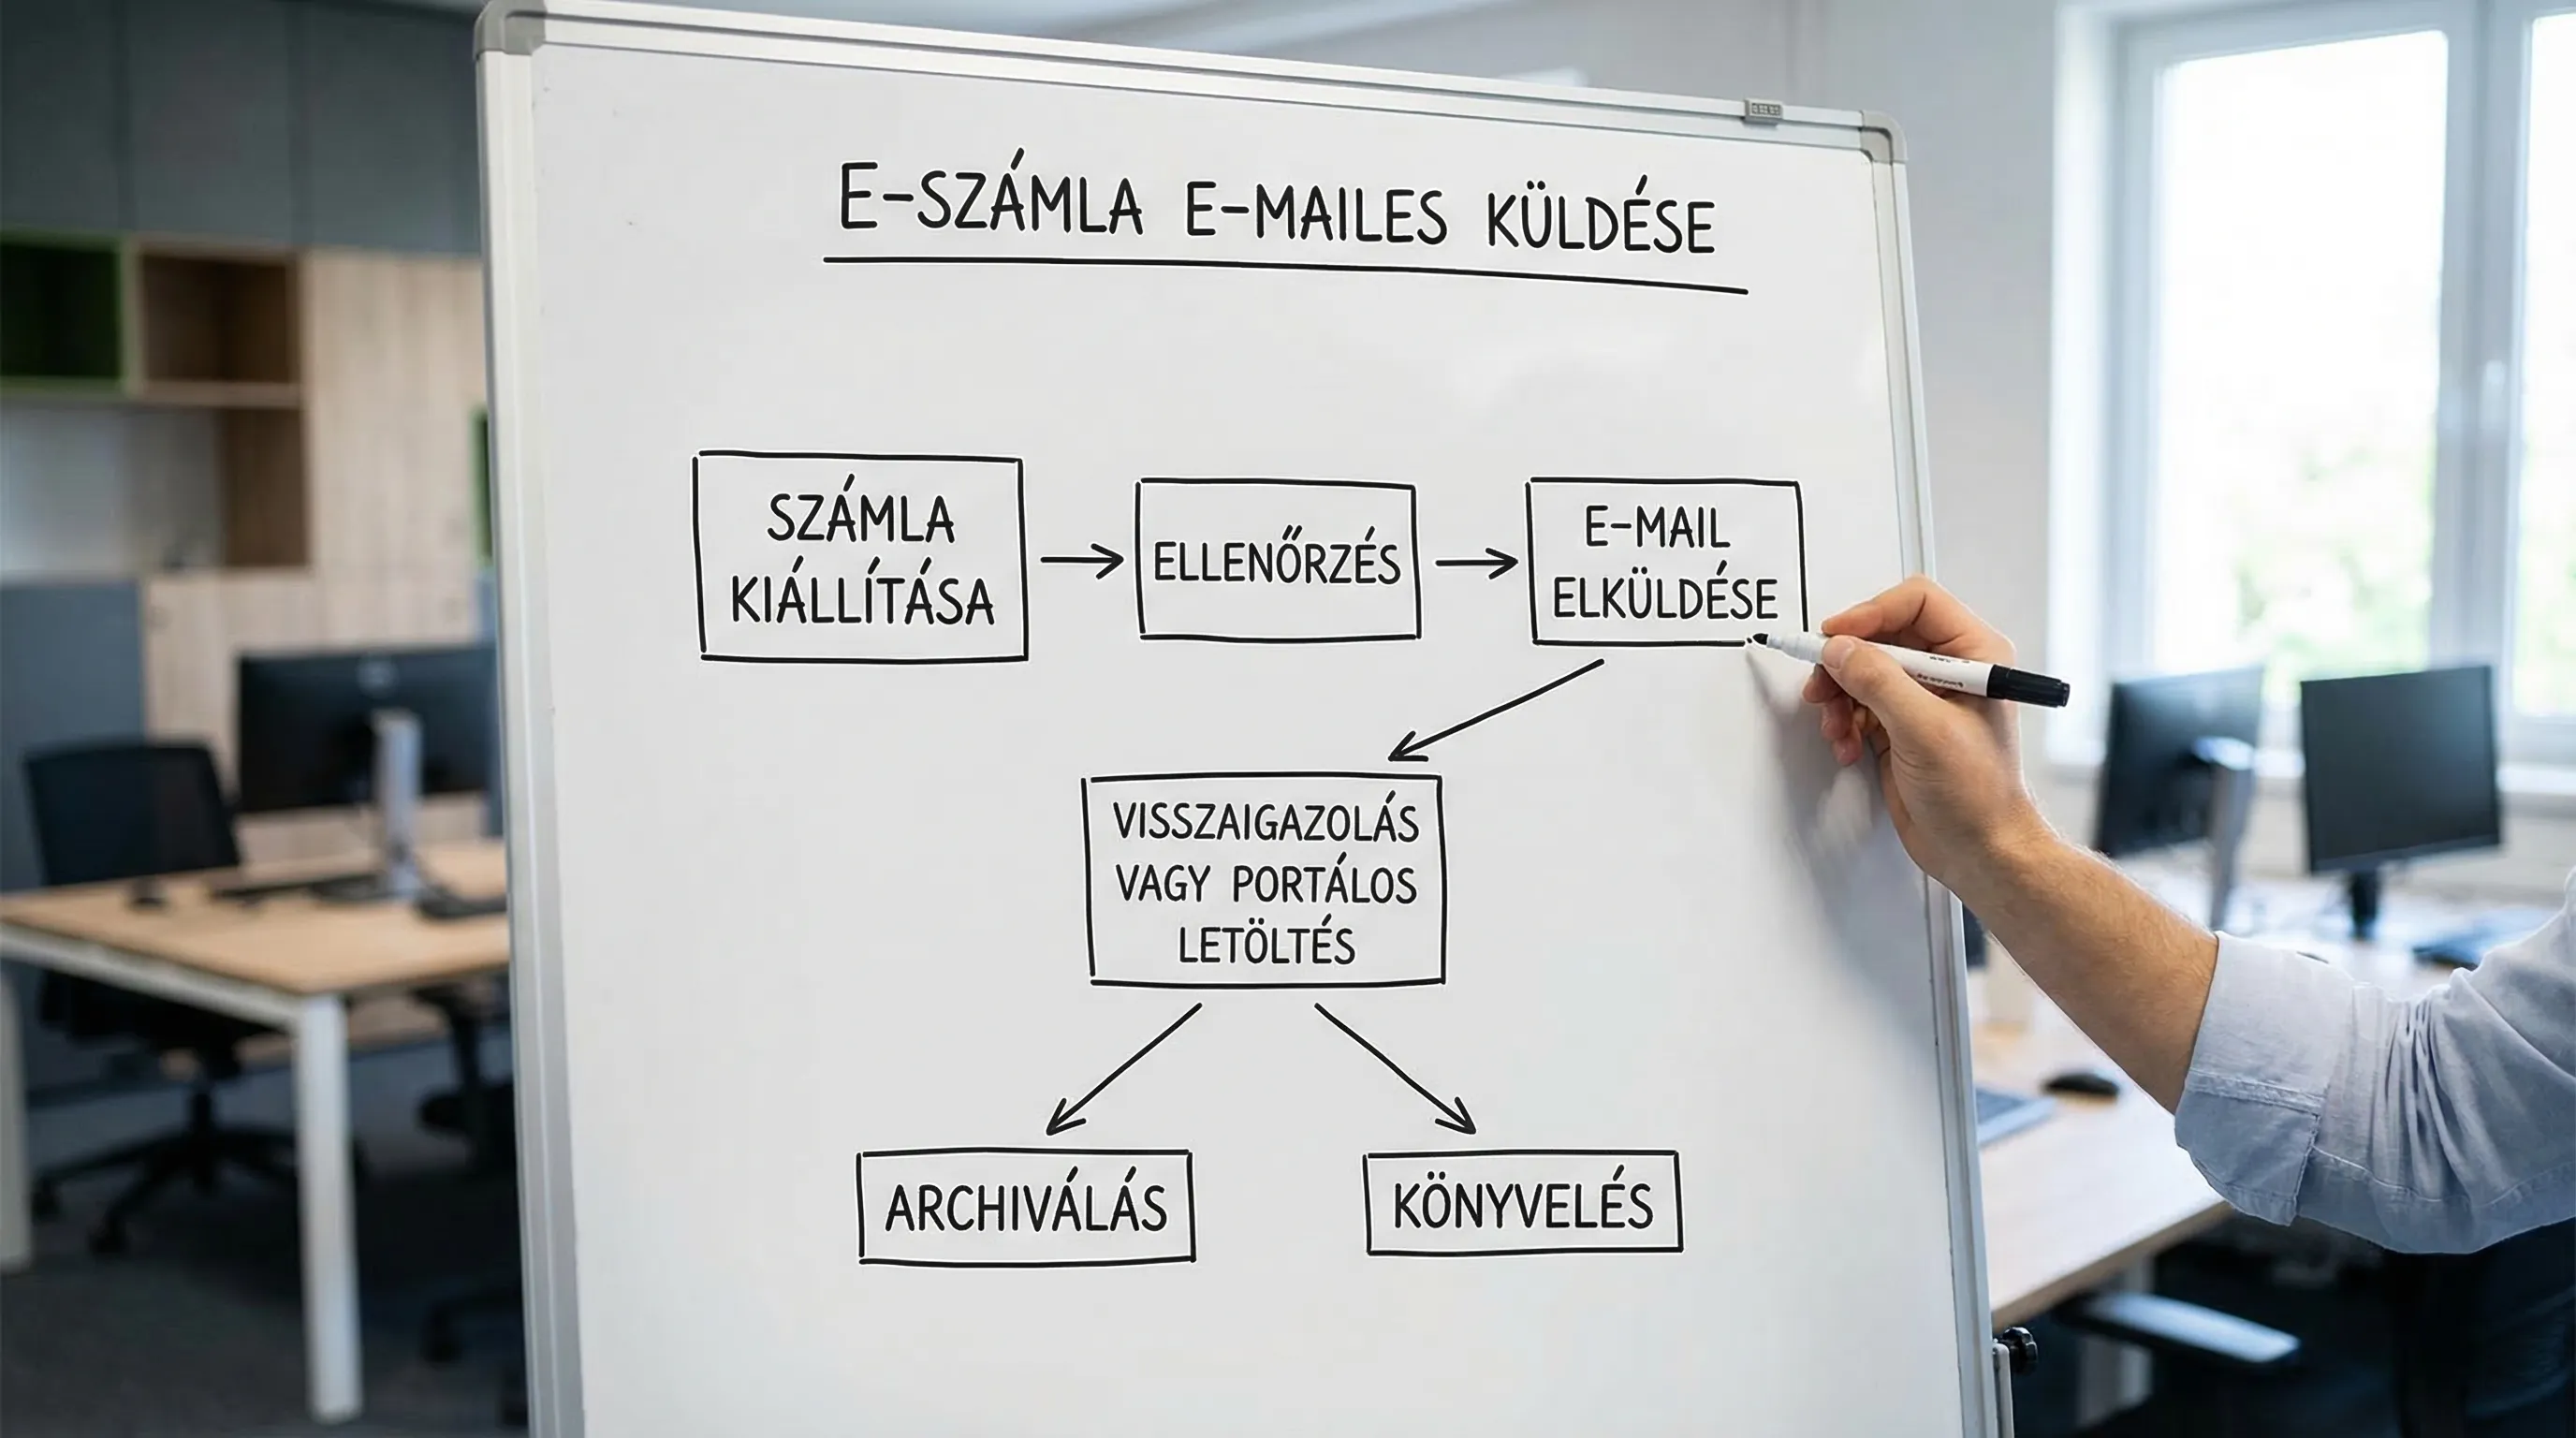 E-SZÁMLA E-MAILES KÜLDÉSE
SZÁMLA
KIÁLLÍTÁSA
ELLENŐRZÉS
E-MAIL
ELKÜLDÉSE
VISSZAIGAZOLÁS
VAGY PORTÁLOS
LETÖLTÉS
ARCHIVÁLÁS
KÖNYVELÉS